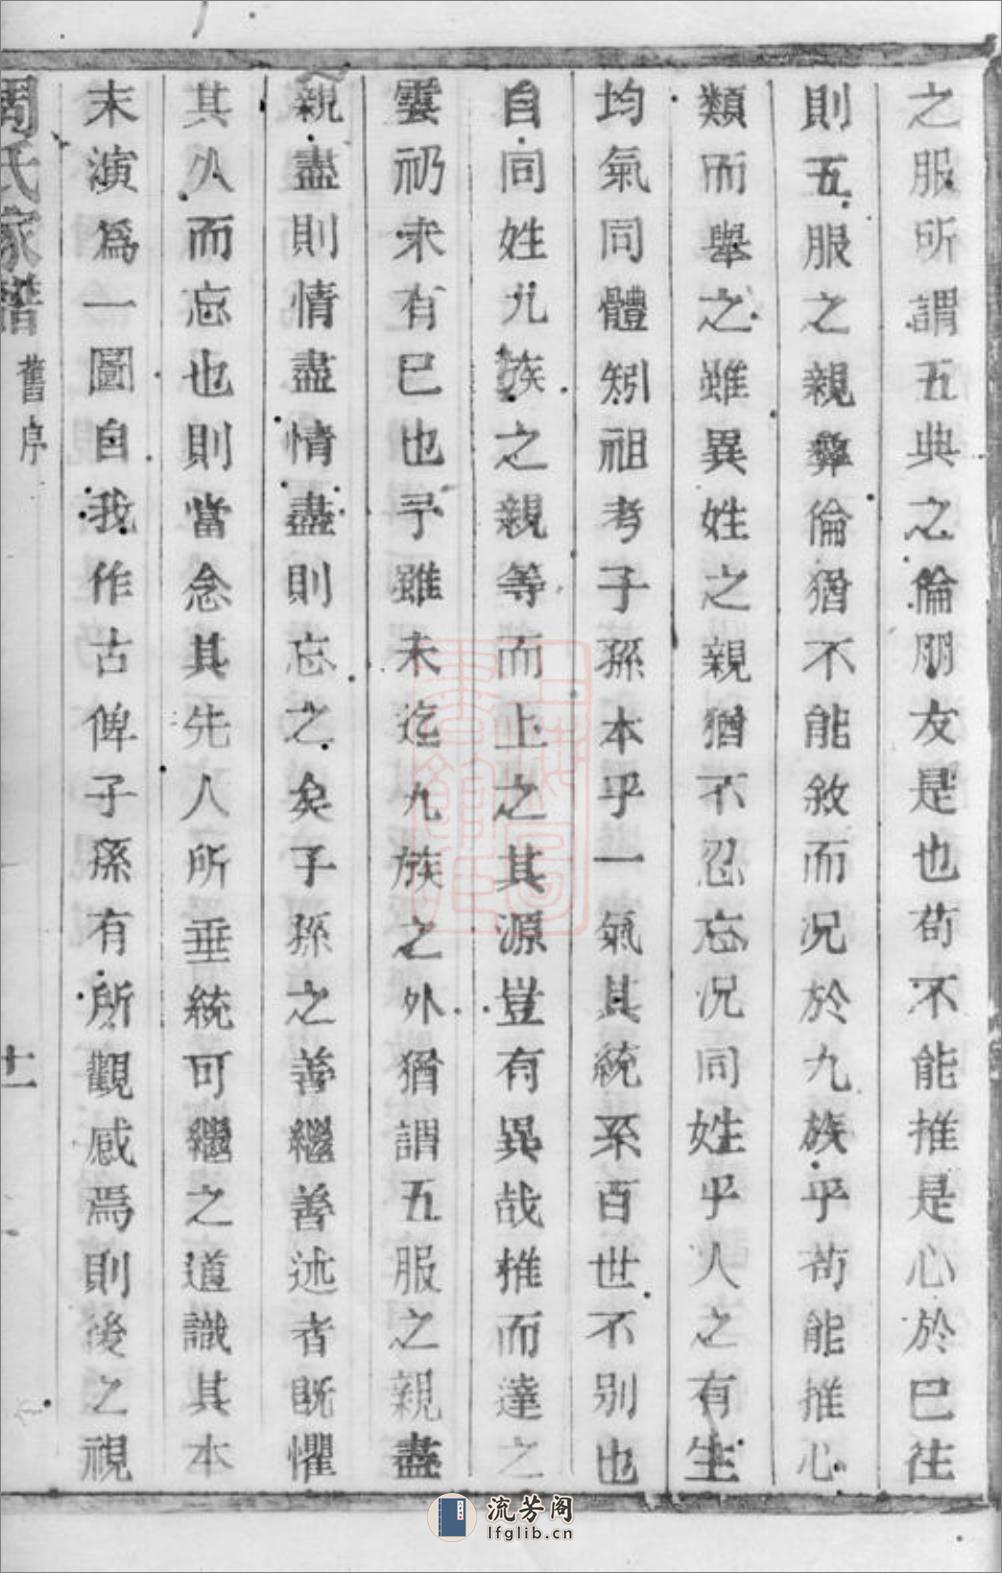 之服所謂五典之倫朋友是也苟不能推是心於巳往
則五服之親彝倫猶不能敘而况於九族乎苟能推心
類而舉之雖異姓之親猶不忍忘况同姓乎人之有生
均氣同體矧祖考子孫本乎一氣其統系百世不別也
自同姓九族之親等而上之其源豈有異哉推而達之
雲礽来有巳也予雖未迄九族之外猶謂五服之親盡
親盡則情盡情盡則忘之矣子孫之善繼善述者既懼
其久而忘也則當念其先人所垂統可繼之道識其本
末演爲一圖自我作古俾子孫有所觀感焉則後之視
周氏家譜 舊序 十一
流芳阁
lfglib.cn